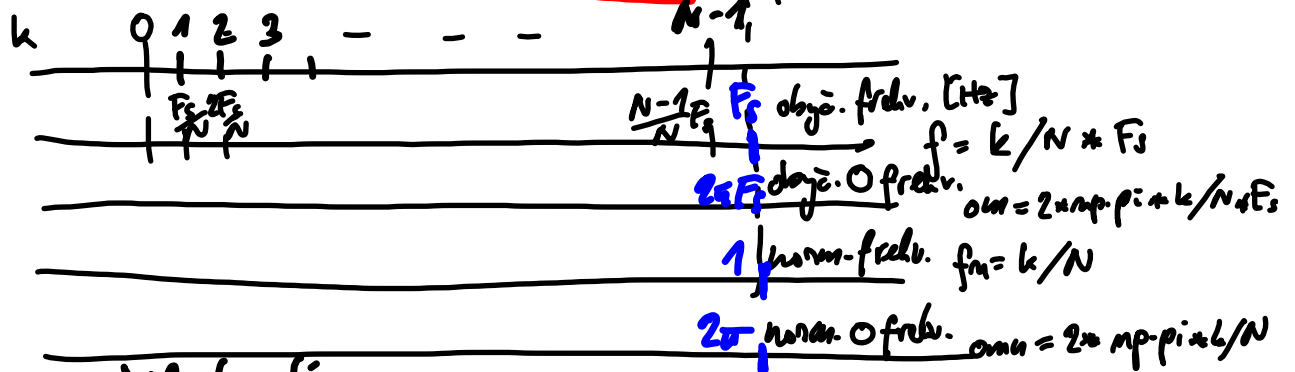 k 0 1 2 3 - - - N-1
Fs/N 2Fs/N N-1/N Fs Fs obyč. frekv. [Hz]
f = k/N * Fs
2πFs obyč. O frekv.
om = 2*np.pi*k/N*Fs
1 norm. frekv. fn = k/N
2π norm. O frekv. omn = 2*np.pi*k/N